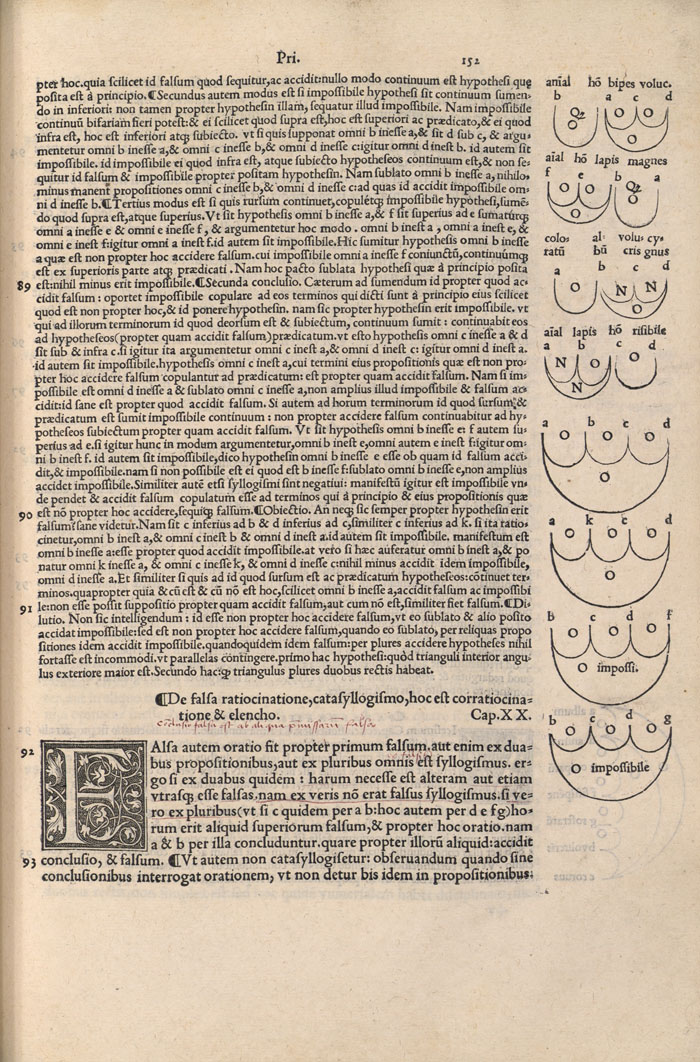 Pri. 152
pter hoc.quia scilicet id falsum quod sequitur,ac accidit:nullo modo continuum est hypothesi quę
posita est à principio. ¶Secundus autem modus est si impossibile hypothesi sit continuum sumen-
do in inferiori: non tamen propter hypothesin illam, sequatur illud impossibile. Nam impossibile
continuũ bifariam fieri potest:& ei scilicet quod supra est,hoc est superiori ac prædicato,& ei quod
infra est, hoc est inferiori atq; subiecto. vt si quis supponat omni b inesse a,& sit d sub c, & argu-
mentetur omni b inesse a,& omni c inesse b,& omni d inesse c:igitur omni d inest b. id autem sit
impossibile. id impossibile ei quod infra est, atque subiecto hypotheseos continuum est,& non se-
quitur id falsum & impossibile propter positam hypothesin. Nam sublato omni b inesse a,nihilo-
minus manent propositiones omni c inesse b,& omni d inesse c:ad quas id accidit impossibile om-
ni d inesse b.¶Tertius modus est si quis rursum continuet,copuletq; impossibile hypothesi,sumē-
do quod supra est,atque superius.Vt sit hypothesis omni b inesse a,& f sit superius ad e sumaturq;
omni a inesse e & omni e inesse f, & argumentetur hoc modo. omni b inest a, omni a inest e, &
omni e inest f:igitur omni a inest f.id autem sit impossibile.Hic sumitur hypothesis omni b inesse
a quæ est non propter hoc accidere falsum.cui impossibile omni a inesse f coniunctū,continuūmq;
est ex superioris parte atq; prædicati. Nam hoc pacto sublata hypothesi quæ à principio posita
89 est:nihil minus erit impossibile.¶Secunda conclusio. Cæterum ad sumendum id propter quod ac-
cidit falsum: oportet impossibile copulare ad eos terminos qui dicti sunt à principio eius scilicet
quod est non propter hoc,& id ponere hypothesin. nam sic propter hypothesin erit impossibile. vt
qui ad illorum terminorum id quod deorsum est & subiectum, continuum sumit: continuabit eos
ad hypotheseos(propter quam accidit falsum)prædicatum.vt esto hypothesis omni c inesse a & d
sit sub & infra c.si igitur ita argumentetur omni c inest a,& omni d inest c: igitur omni d inest a.
id autem sit impossibile.hypothesis omni c inest a,cui termini eius propositionis quæ est non pro-
pter hoc accidere falsum copulantur ad prædicatum: est propter quam accidit falsum. Nam si im-
possibile est omni d inesse a & sublato omni c inesse a,non amplius illud impossibile & falsum ac-
cidit:id sane est propter quod accidit falsum. Si autem ad horum terminorum id quod sursum,&
prædicatum est sumit impossibile continuum: non propter accidere falsum continuabitur ad hy-
potheseos subiectum propter quam accidit falsum. Vt sit hypothesis omni b inesse e: f autem su-
perius ad e.si igitur hunc in modum argumentetur,omni b inest e,omni autem e inest f:igitur om-
ni b inest f. id autem sit impossibile,dico hypothesin omni b inesse e esse ob quam id falsum acci-
dit,& impossibile.nam si non possibile est ei quod est b inesse f:sublato omni b inesse e,non amplius
accidet impossibile.Similiter autē etsi syllogismi sint negatiui: manifestū igitur est impossibile vn-
de pendet & accidit falsum copulatum esse ad terminos qui à principio & eius propositionis quæ
90 est nō propter hoc accidere,sequiq; falsum. ¶Obiectio. An neq; sic semper propter hypothesin erit
falsum?sane videtur.Nam sit c inferius ad b & d inferius ad c,similiter c inferius ad k. si ita ratio-
cinetur,omni b inest a,& omni c inest b & omni d inest a.id autem sit impossibile. manifestum est
omni b inesse a:esse propter quod accidit impossibile.at vero si hæc auferatur omni b inest a,& po
natur omni k inesse a, & omni c inesse k, & omni d inesse c:nihil minus accidit idem impossibile,
omni d inesse a.Et similiter si quis ad id quod sursum est ac prædicatum hypotheseos:cōtinuet ter-
minos.quapropter quia & cū est & cū nō est hoc,scilicet omni b inesse a,accidit falsum ac impossibi
91 le:non esse possit suppositio propter quam accidit falsum,aut cum nō est,similiter fiet falsum. ¶Di-
lutio. Non sic intelligendum: id esse non propter hoc accidere falsum,vt eo sublato & alio posito
accidat impossibile:sed est non propter hoc accidere falsum,quando eo sublato, per reliquas propo
sitiones idem accidit impossibile.quandoquidem idem falsum:per plures accidere hypotheses nihil
fortasse est incommodi.vt parallelas contingere.primo hac hypothesi:quòd trianguli interior angu-
lus exteriore maior est.Secundo hac:q; triangulus plures duobus rectis habeat.
¶De falsa ratiocinatione,catasyllogismo,hoc est corratiocina-
tione & elencho. Cap.XX.
92 FAlsa autem oratio fit propter primum falsum.aut enim ex dua-
bus propositionibus,aut ex pluribus omnis est syllogismus. er-
go si ex duabus quidem: harum necesse est alteram aut etiam
vtrasq; esse falsas.nam ex veris nō erat falsus syllogismus.si ve-
ro ex pluribus(vt si c quidem per a b:hoc autem per d e fg)ho-
rum erit aliquid superiorum falsum,& propter hoc oratio.nam
a & b per illa concluduntur.quare propter illorū aliquid:accidit
93 conclusio, & falsum. ¶Vt autem non catasyllogisetur: obseruandum quando sine
conclusionibus interrogat orationem, vt non detur bis idem in propositionibus:
anīal hō bipes voluc.
b a c d
O O O O
aīal hō lapis magnes
f e b a
O O O O
colo- al- volu- cy-
ratū bū cris gnus
a b c d
O O N N O
aīal lapis hō risibile
a b c d
N O O N
a b c d
O O O O
a k c d
O O O O
b c d f
O O O
O impossi.
b c d g
O O O
O impossibile